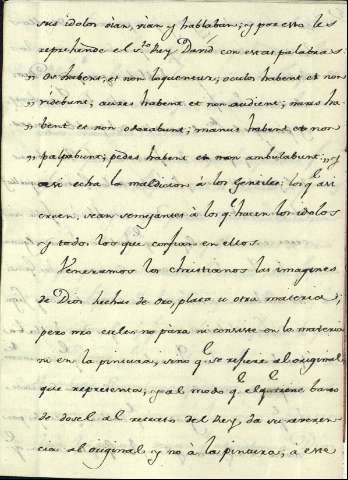 sus idolos oian, vian y hablaban; y por esto les
reprehende el S.to Rey David con estas palabras
" Os habent, et non loquentur; oculos habent et non
" videbunt; aures habent et non audient; nares ha-
" bent et non odorabunt; manus habent et non
" palpabunt; pedes habent et non ambulabunt; y
asi echa la maldicion à los Gentiles; los q.e asi
creen, sean semejantes à los q.e hacen los idolos
y todos los que confian en ellos.
Veneramos los christianos las imagenes
de Dios hechas de oro, plata u otra materia;
pero nro culto no para ni consiste en la materia
ni en la pintura, sino q.e se refiere al original
que representa; y al modo q.e el q.e tiene baxo
de dosel al retrato del Rey, da su reveren-
cia al original y no à la pintura; à este